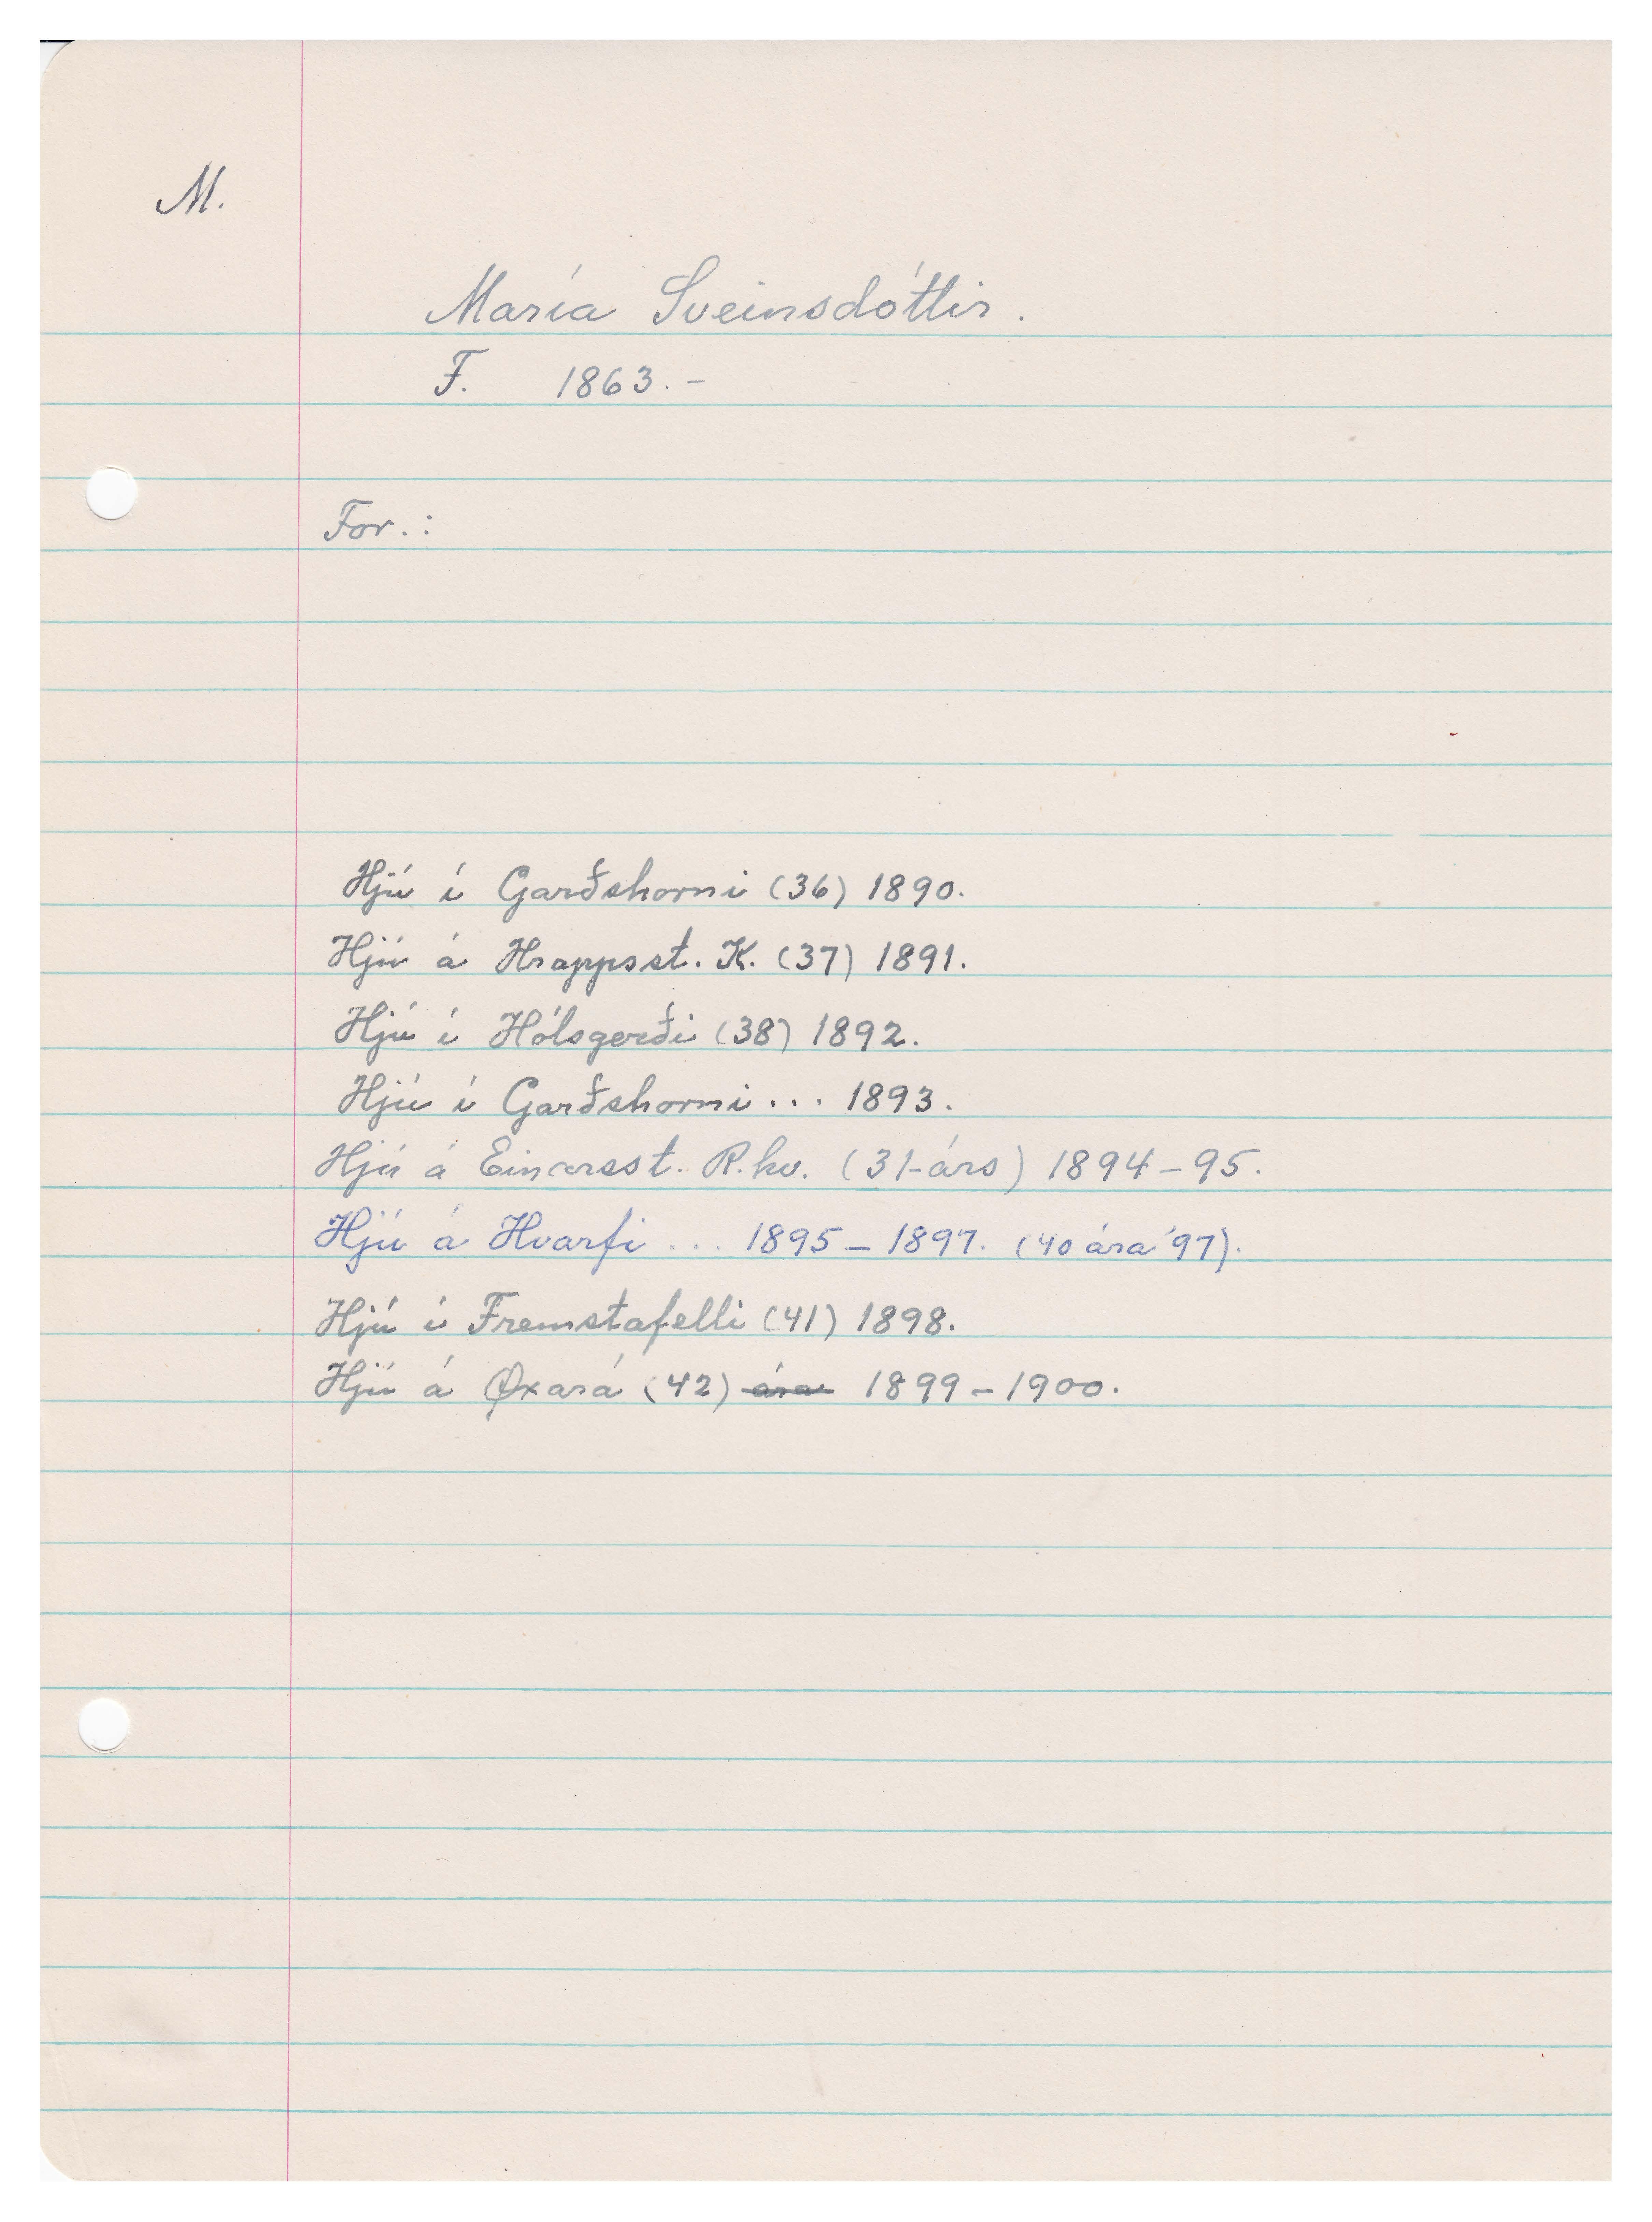 M.
María Sveinsdóttir.
F. 1863. -
For. :
Hjú í Garðshorni (36) 1890.
Hjú á Hrappsst. K. (37) 1891.
Hjú í Hólsgerði (38) 1892.
Hjú í Garðshorni ... 1893.
Hjú á Einarsst. R.hv. (31-árs) 1894-95.
Hjú á Hvarfi ... 1895-1897. (40 ára '97).
Hjú í Fremstafelli (41) 1898.
Hjú á Øxará (42) ára 1899-1900.